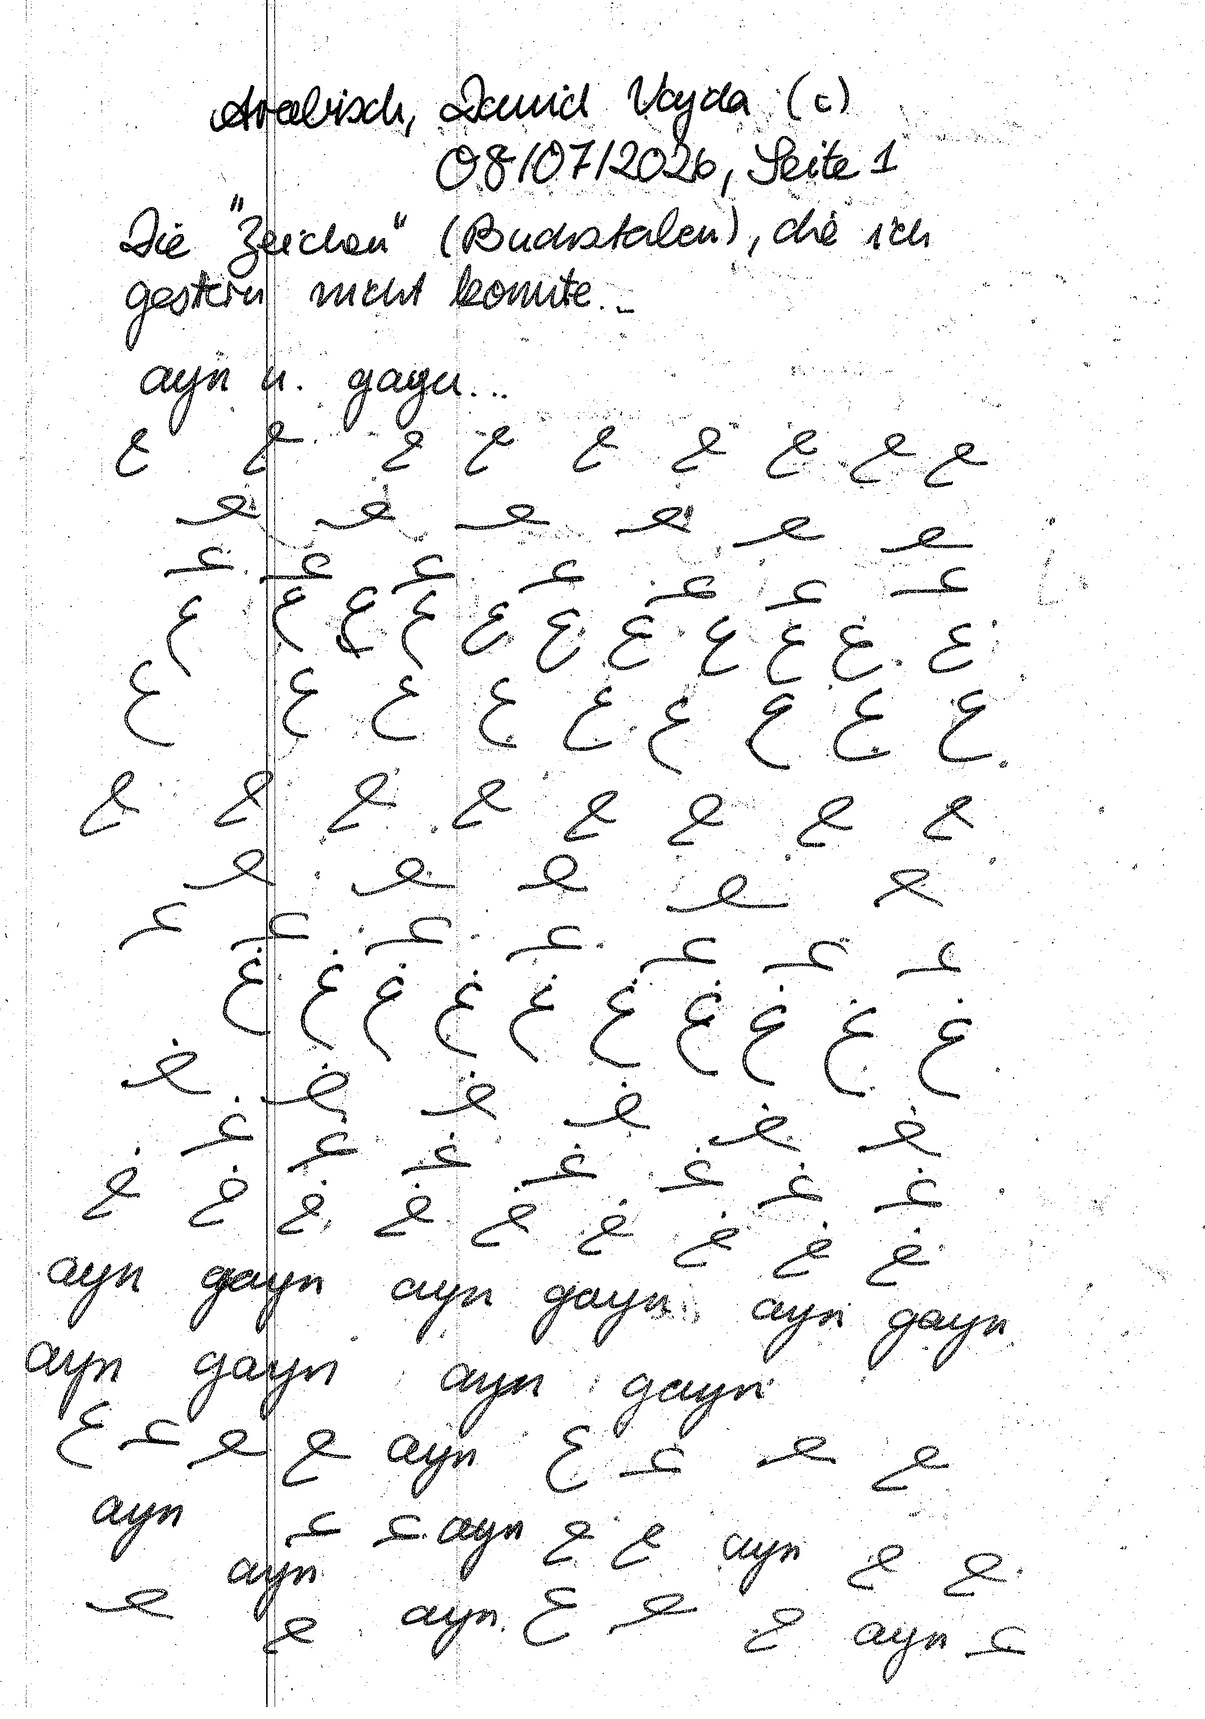 Arabisch, David Vajda (c)
08/07/2026, Seite 1
Die "Zeichen" (Buchstaben), die ich
gestern nicht konnte...
ayn u. gayn...
ـع ـع ـع ـع ـع ـع ـع ـع ـع
ـعـ ـعـ ـعـ ـعـ ـعـ ـعـ
عـ عـ عـ عـ عـ عـ عـ
ع ع ع ع ع ع ع ع ع ع ع
ع ع ع ع ع ع ع ع ع
ـع ـع ـع ـع ـع ـع ـع ـع
ـعـ ـعـ ـعـ ـعـ ـعـ
عـ عـ عـ عـ عـ عـ عـ
غ غ غ غ غ غ غ غ غ غ
ـغـ ـغـ ـغـ ـغـ ـغـ ـغـ
غـ غـ غـ غـ غـ غـ غـ
ـغ ـغ ـغ ـغ ـغ ـغ ـغ ـغ ـغ
ayn gayn ayn gayn ayn gayn
ayn gayn ayn gayn
ع عـ ـعـ ـع ayn ع عـ ـعـ ـع
ayn عـ عـ ayn ـع ـع ayn ـع ـع
ayn
ـعـ ـع ayn ع ـعـ ـع ayn عـ